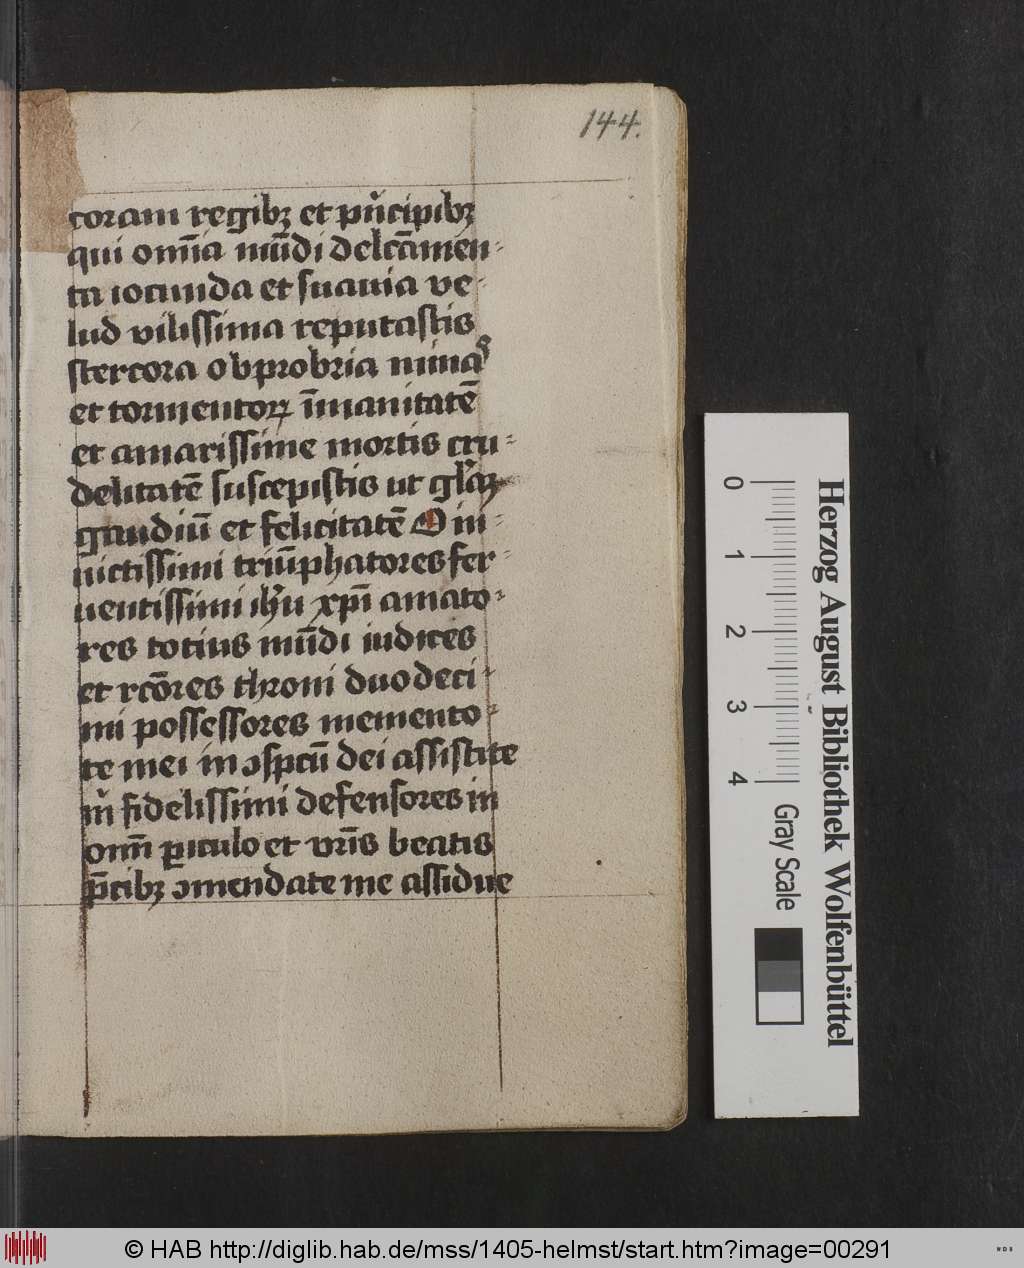 144.
coram regibꝫ et pͥncipibꝫ
qui om̄ia mūdi delcāmen-
ta iocunda et suauia ve-
lud vilissima reputastis
stercora obprobria minas
et tormentoꝝ īmanitatē
et amarissime mortis cru-
delitatē suscepistis ut glͥaꝫ
gaudiū et felicitatē O in-
uictissimi triūphatores fer-
uentissimi ih̄u xp̄i amato-
res totius mūdi iudices
et rcōres throni duodeci-
mi possessores memento-
te mei in ↄspctū dei assistite
m̄ fidelissimi defensores in
om̄i ꝑiculo et vr̄is beatis
p̄cibꝫ ↄmendate me assidue
Herzog August Bibliothek Wolfenbüttel
0 1 2 3 4 Gray Scale
© HAB http://diglib.hab.de/mss/1405-helmst/start.htm?image=00291